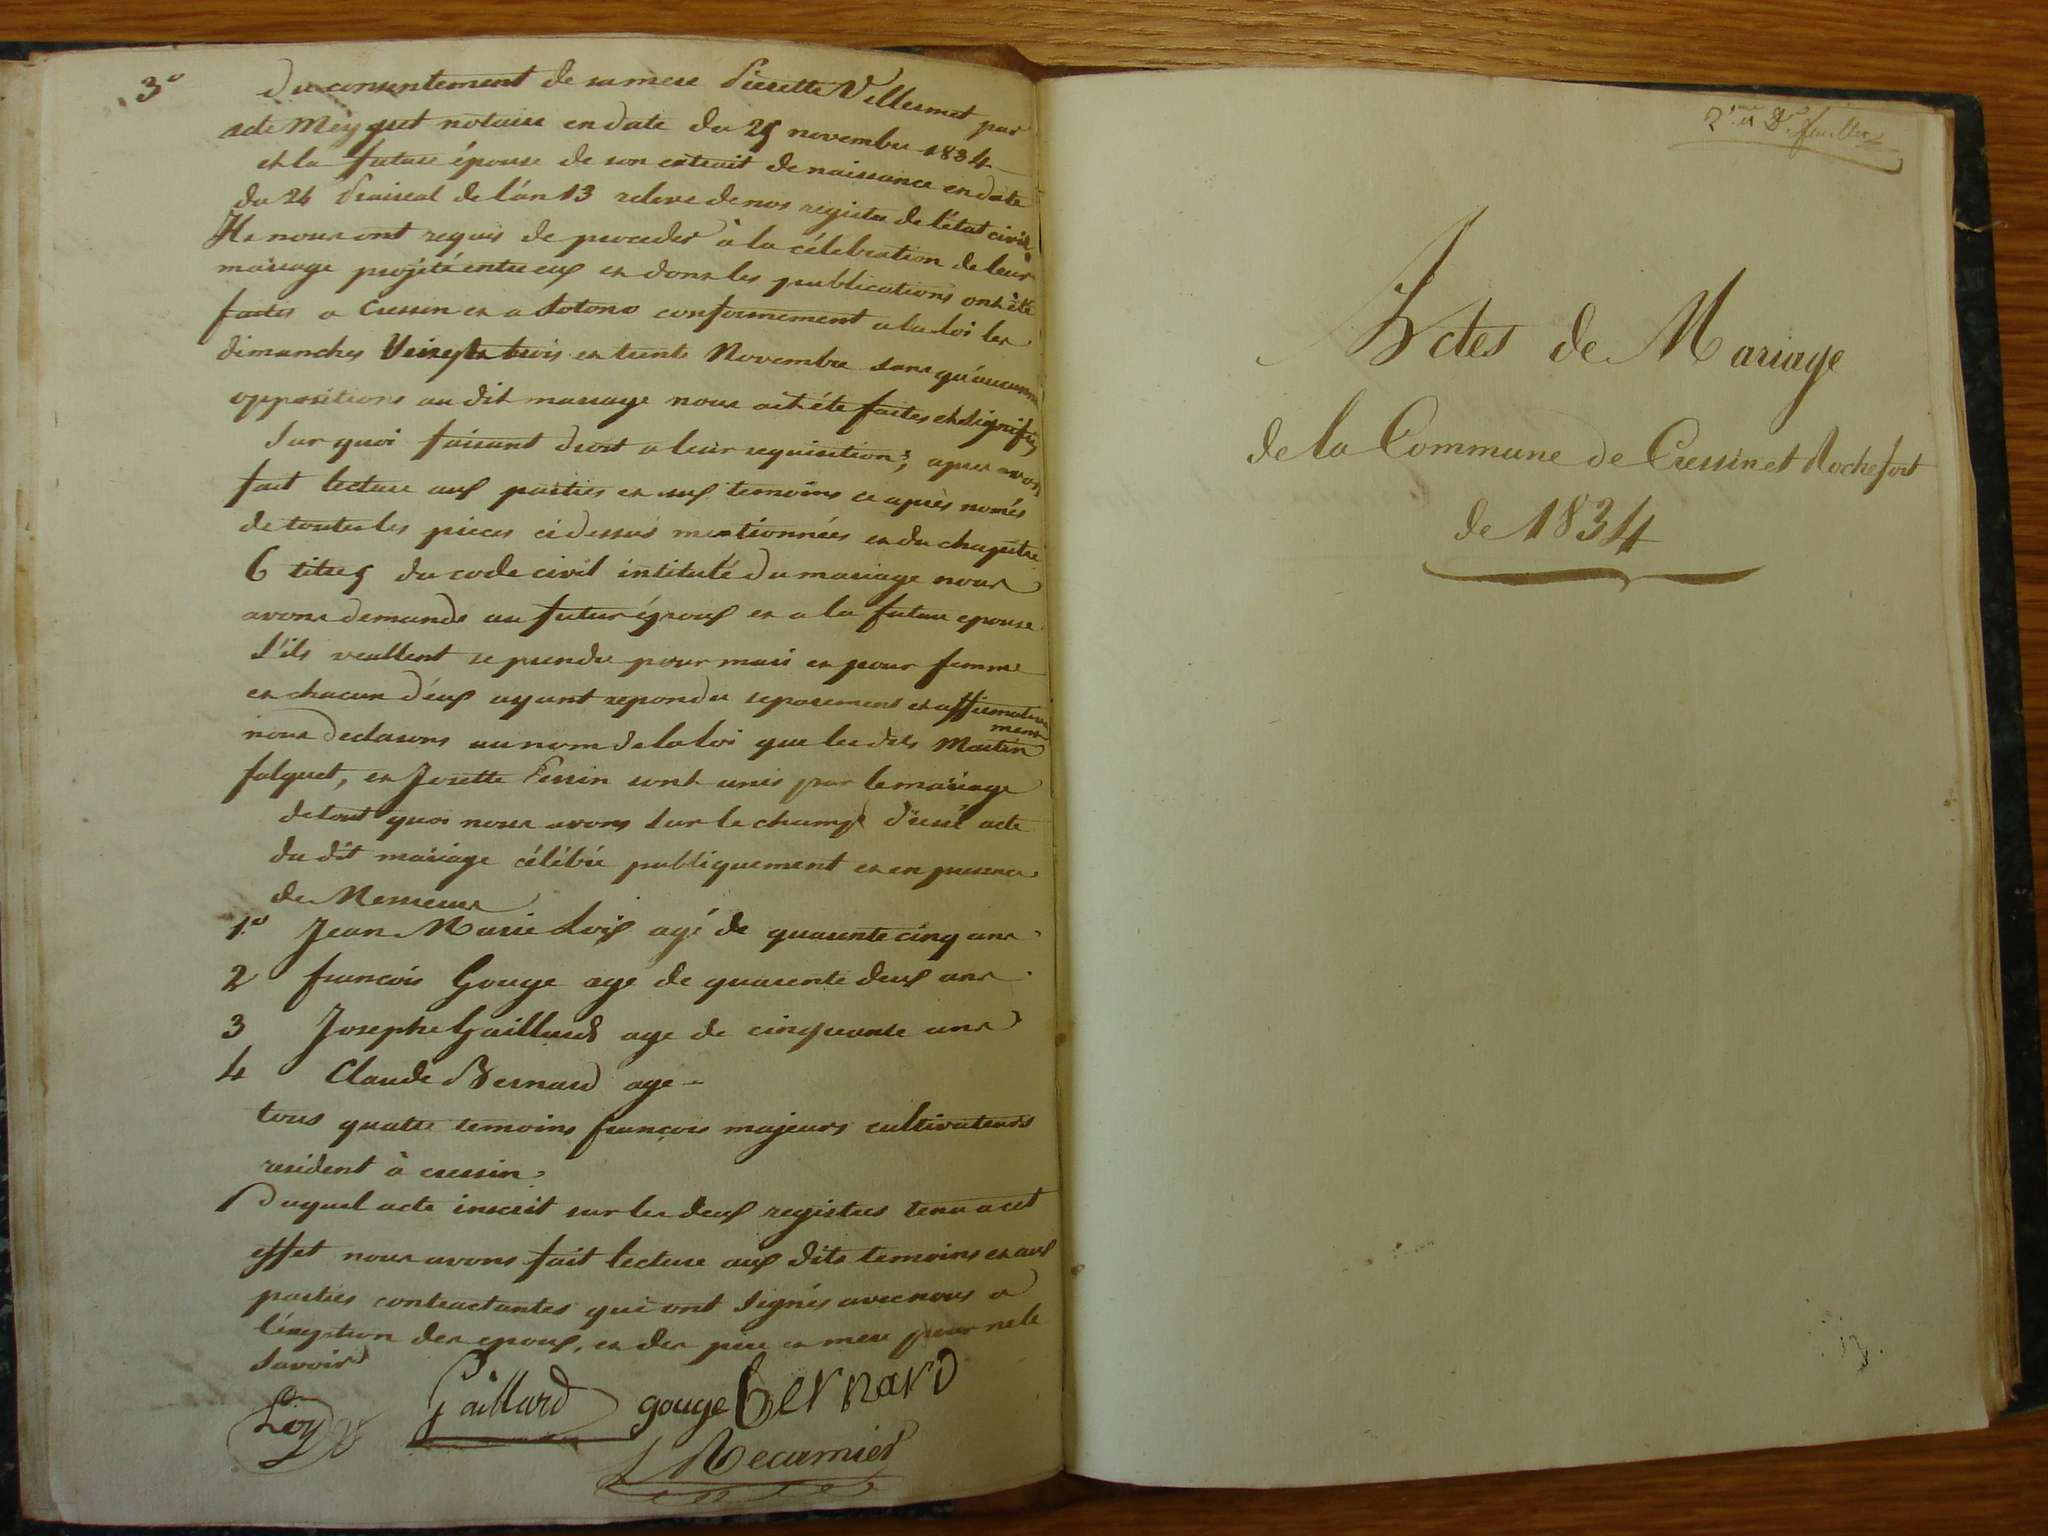 3o du consentement de sa mere Pierette Villermet par
acte Meyguet notaire en date du 25 novembre 1834
et la future épouse de son extrait de naissance en date
du 24 Praireal de l'an 13 releve de nos registre de l'état civil
Ils nous ont requis de proceder à la célebration de leur
mariage projété entre eux et dont les publications ont été
faites a Cressin et a Lotono conformement a la loi les
dimanches Veingte trois et trente Novembre sans qu'aucunes
oppositions au dit mariage nous ait été faites et signifie
Sur quoi faisant droit a leur requisition, apres avoir
fait lecture aux parties et aux temoins ci après només
de toutes les pieces ci dessus mentionnées et du chapitre
6 titre 5 du code civil intitulé Du mariage nous
avons demande au futur époux et a la future epouse
S'ils veullent se prendre pour mari et pour femme
et chacun d'eux ayant repondu separement et affirmative
ment
nous declarons au nom de la loi que les dits Martin
falquet, et Josette Perrin sont unis par le mariage
de tout quoi nous avons sur le champ dressé acte
du dit mariage célébré publiquement et en presence
de Messieurs
1o Jean Marie Loix agé de quarente cinq ans
2 francois Gouge age de quarente deux ans
3 Josephe Gaillard age de cinquante ans
4 Claude Bernard age
tous quatre temoins françois majeurs cultivateurs
resident à cressin
Duquel acte inscrit sur les deux registres tenu a cet
effet nous avons fait lecture aux dits temoins et aux
parties contractantes qui ont signés avec nous a
l'éxeption des epoux, et des pere et mere pour ne le
savoir
Loy Gaillard gouge bernard
Recamier
2me et Dr. feuillets
Actes de Mariage
de la Commune de Cressin et Rochefort
de 1834